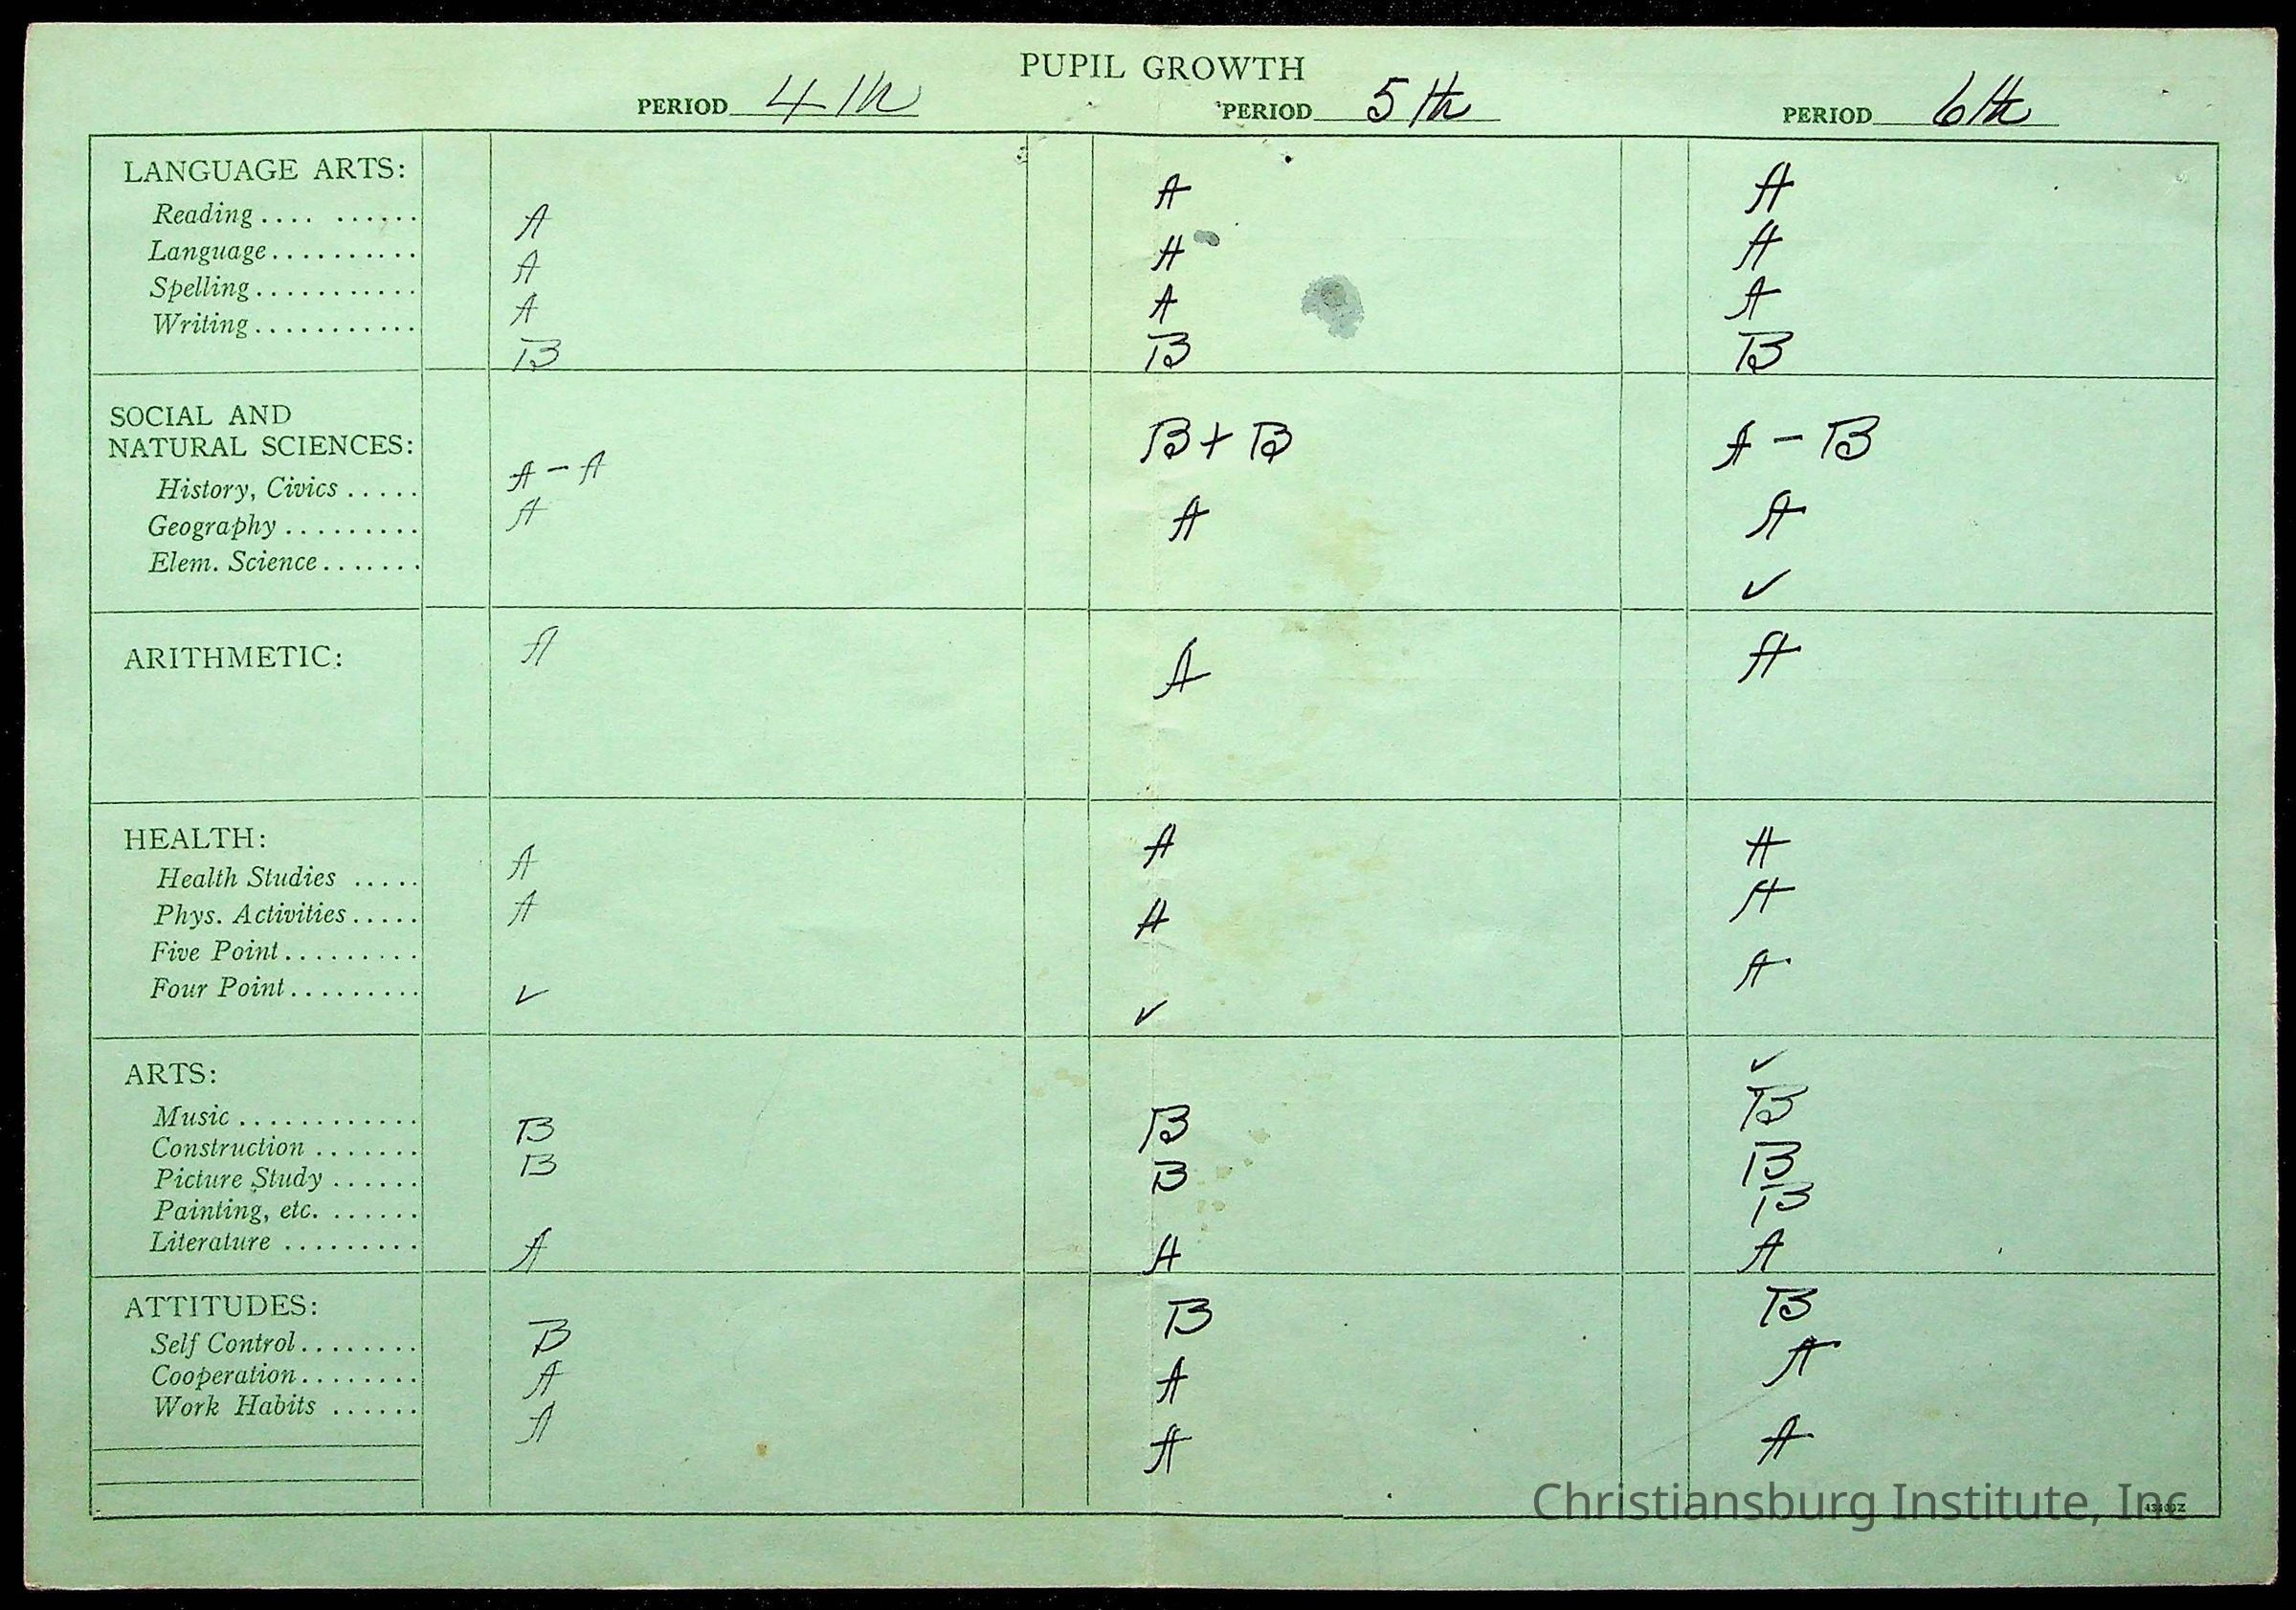 PUPIL GROWTH
PERIOD 4th PERIOD 5th PERIOD 6th
LANGUAGE ARTS: A A
Reading .... ...... A
Language.......... A A A
Spelling........... A A A
Writing........... B B B
SOCIAL AND
NATURAL SCIENCES: B+B A-B
History, Civics ..... A-A
Geography ......... A A A
Elem. Science....... ✓
ARITHMETIC: A A A
HEALTH: A A
Health Studies ..... A A
Phys. Activities..... A A
Five Point......... A
Four Point......... ✓ ✓
ARTS: ✓
Music ............ B B B
Construction ....... B B B
Picture Study ...... B
Painting, etc. ......
Literature ......... A A A
ATTITUDES: B B
Self Control........ B A
Cooperation........ A A
Work Habits ...... A A A
Christiansburg Institute, Inc